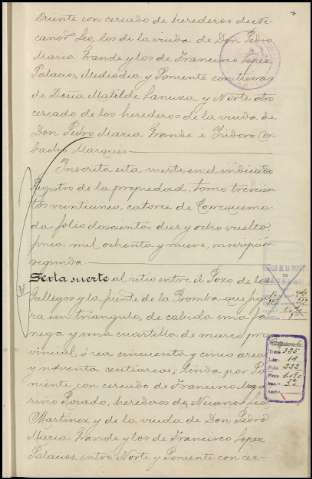 Oriente con cercado de herederos de Ni-
canor Leo, los de la viuda de Don Pedro
Maria Grande y los de Francisco Lopez
Palacios, Mediodia y Poniente con tierras
de Doña Matilde Sanusa, y Norte otro
cercado de los herederos de la viuda de
Don Pedro Maria Grande e Isidoro
Marques
Inscrita esta suerte en el indicado
Registro de la propiedad, tomo trescien-
tos veintiuno, catorce de
da, folio doscientos diez y ocho vuelto,
finca mil ochenta y nueve, inscripcion
segunda
Sexta suerte al sitio entre el Pozo de los
Gallegos y la fuente de la Bomba que figu-
ra un triangulo, de cabida una fa-
nega y una cuartilla de marco pro-
vincial, ó sea cincuenta y cinco areas
y noventa centiareas; linda por
niente con cercado de Francisco
rino Rosado, herederos de Nicanor
Martinez y de la viuda de Don Pedro
Maria Grande y los de Francisco Lopez
Palacios, entre Norte y Poniente con cer-